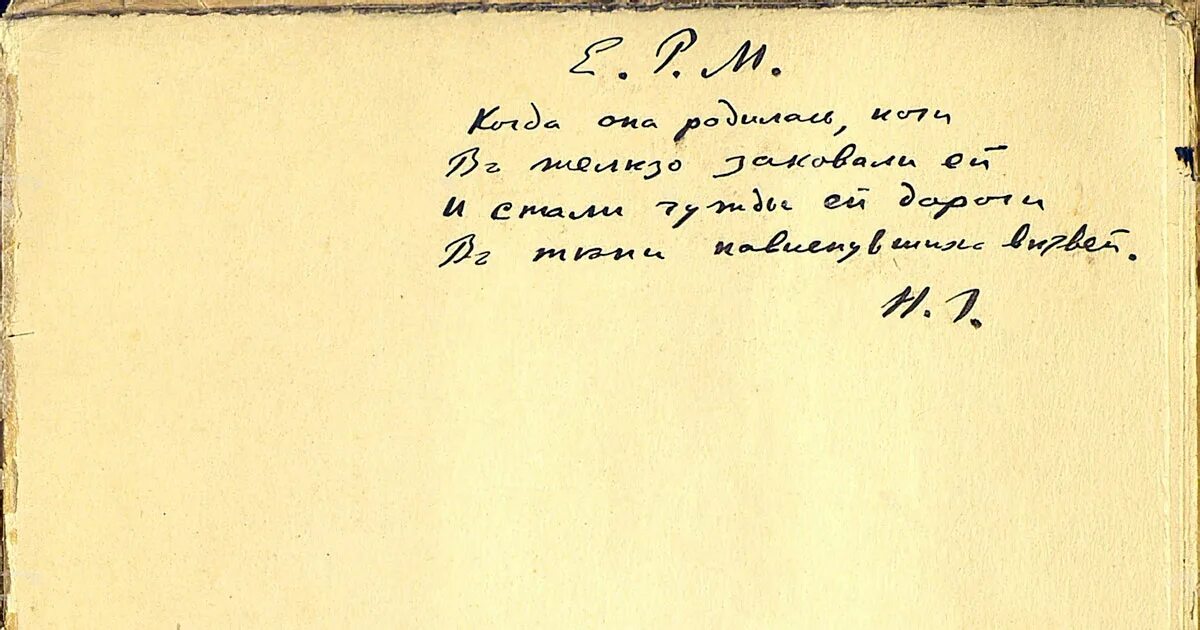 Е. Р. М.
Когда она родилась, ноги
Въ желѣзо заковали ей
И стали чужды ей дороги
Въ тѣни нависнувшихъ вѣтвей.
Н. Г.